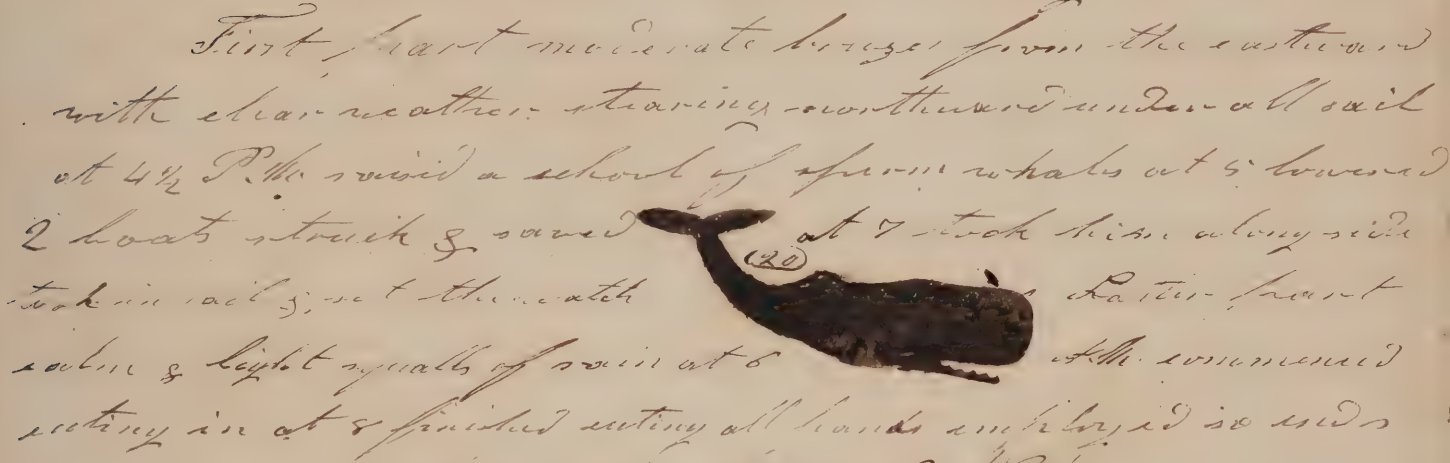 First part moderate breezes from the eastward
with clear weather stearing northward under all sail
at 4½ P.M. raised a school of sperm whales at 5 lowered
2 boats struck & saved at 7 took him alongside
(20)
took in sail & set the watch Latter part
calm & light squalls of rain at 6 A.M. commenced
cuting in at 8 finished cuting all hands employed so ends